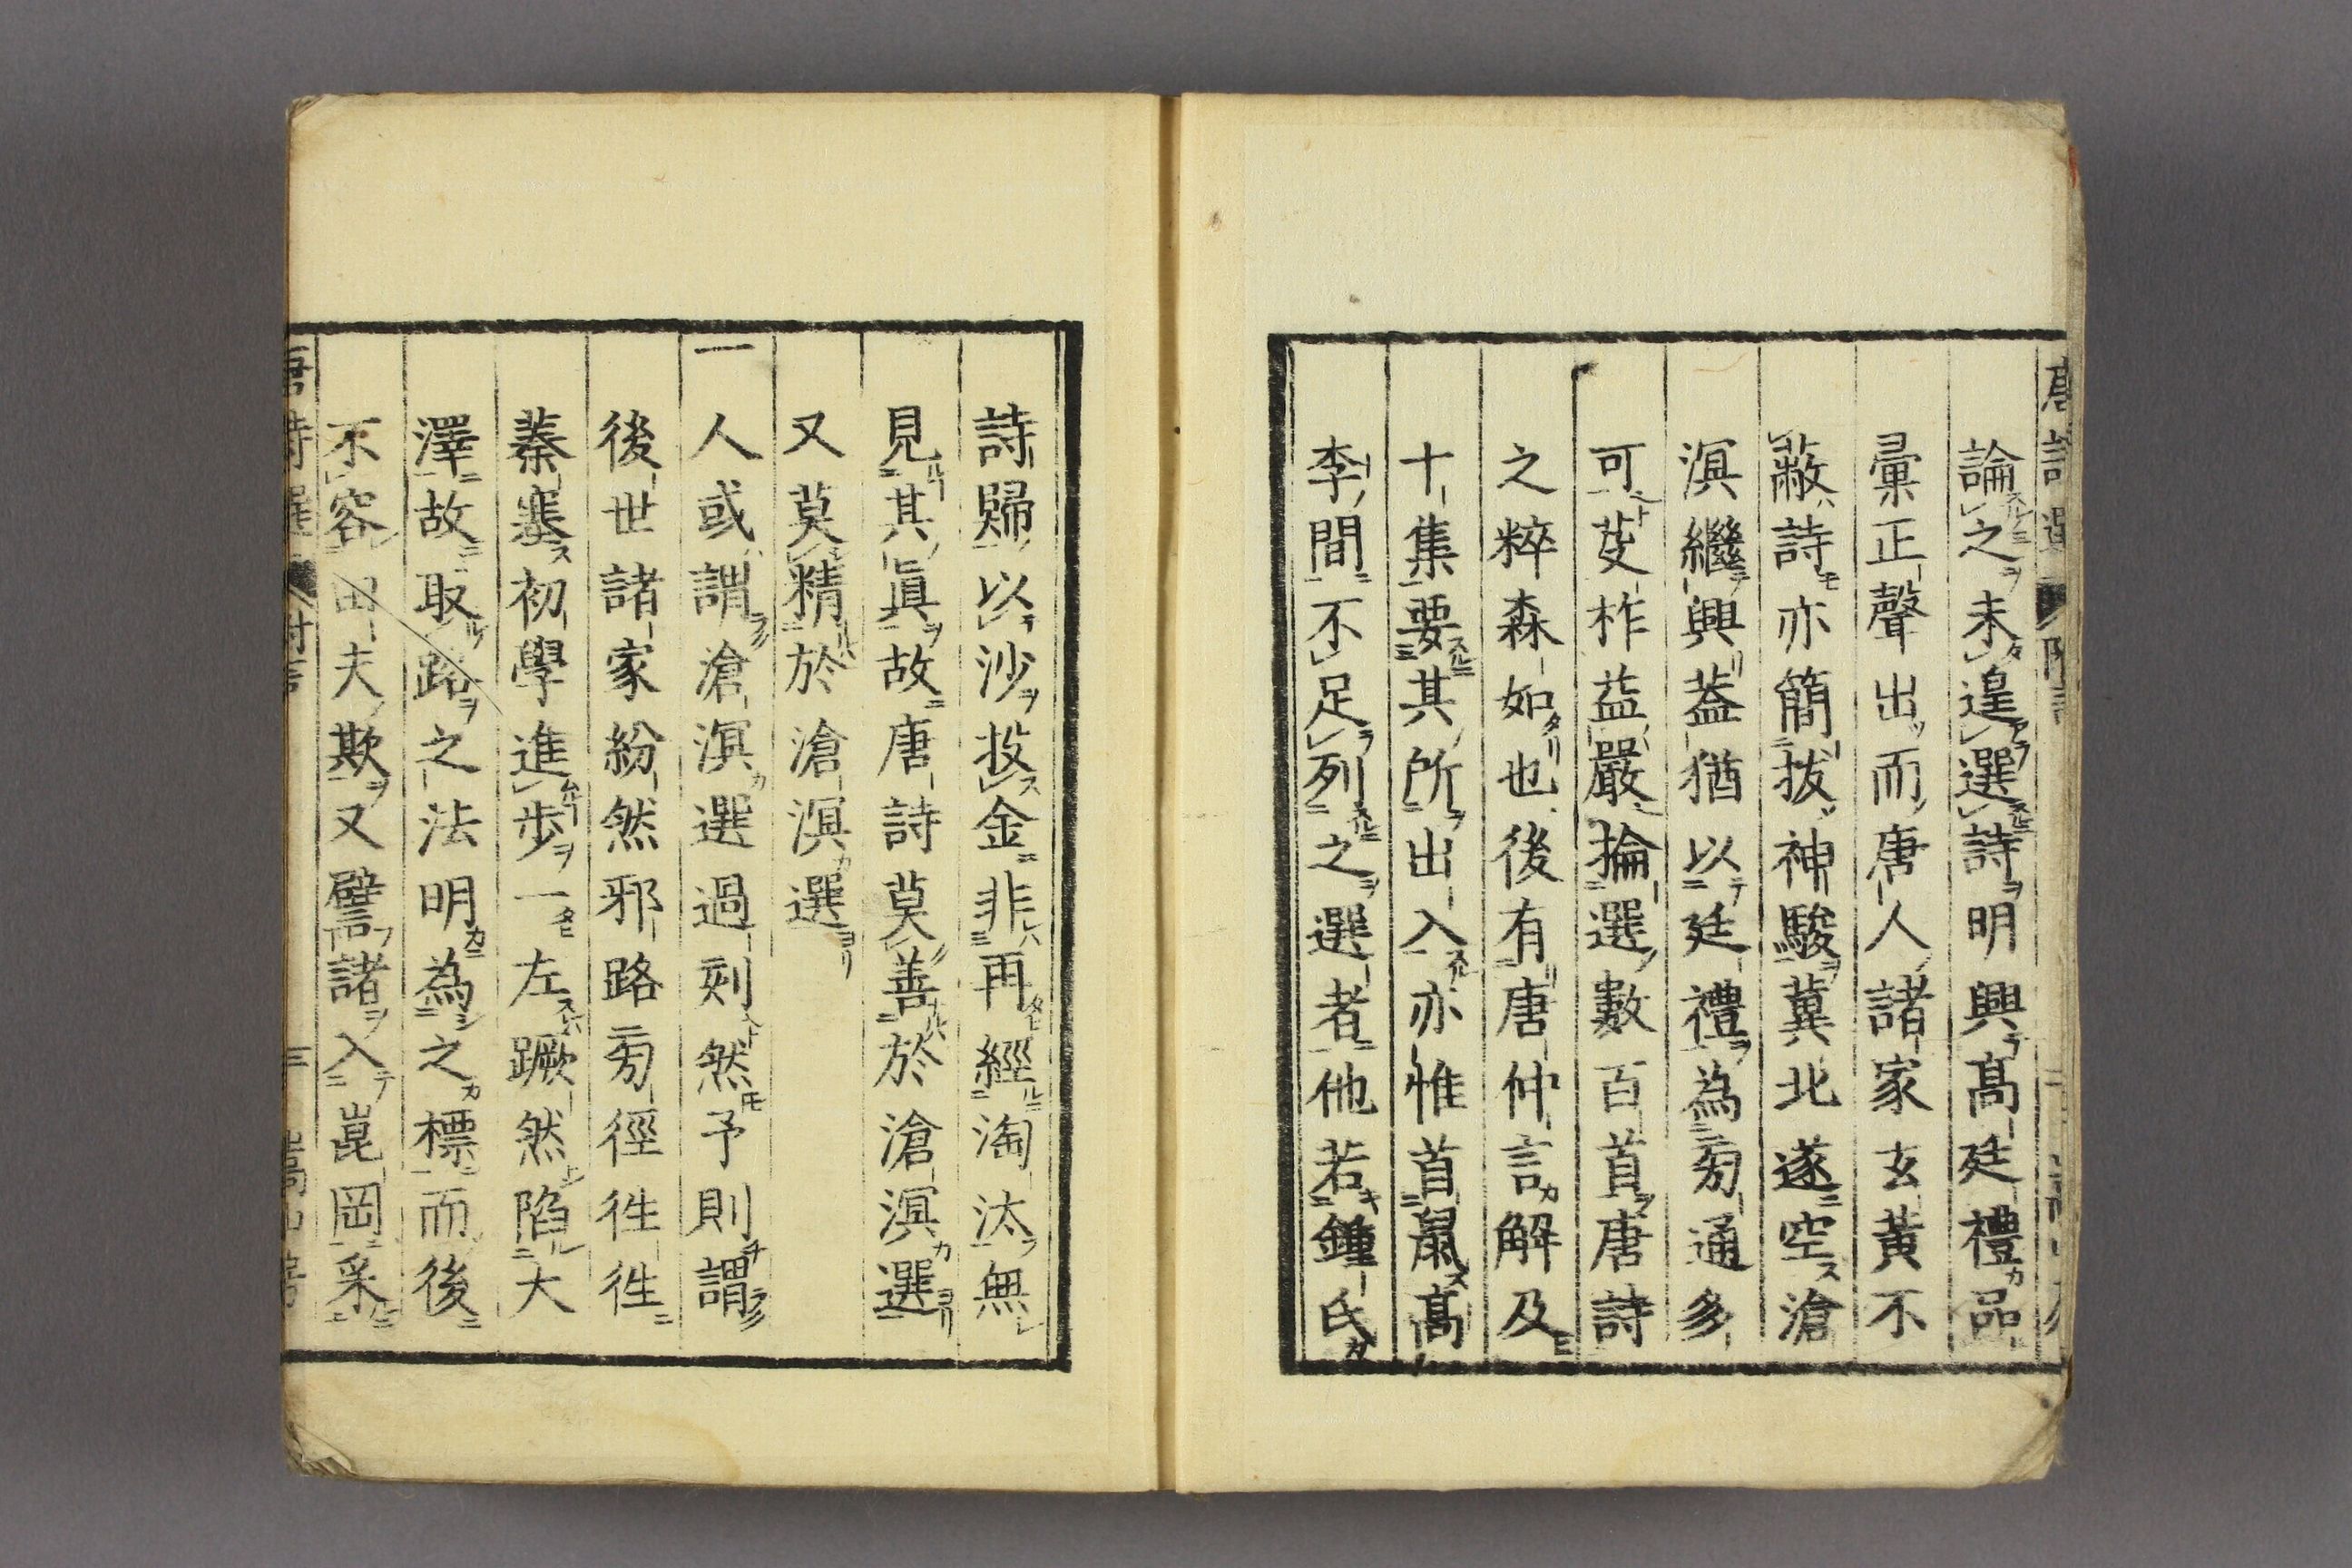 論之未遑選詩明興高廷禮品
彙正聲出而唐人諸家玄黃不
蔽詩亦簡拔神駿冀北遂空滄
溟繼興蓋猶以廷禮為旁通多
可芟柞益嚴掄選數百首唐詩
之粹森如也後有唐仲言解及
十集要其所出入亦惟首鼠高
李間不足列之選者他若鍾氏
詩歸以沙投金非再經淘汰無
見其眞故唐詩莫善於滄溟選
又莫精於滄溟選
一人或謂滄溟選過刻然予則謂
後世諸家紛然邪路旁徑往往
蓁塞初學進步一左蹶然陷大
澤故取路之法明為之標而後
不容田夫欺又譬諸入崑岡采